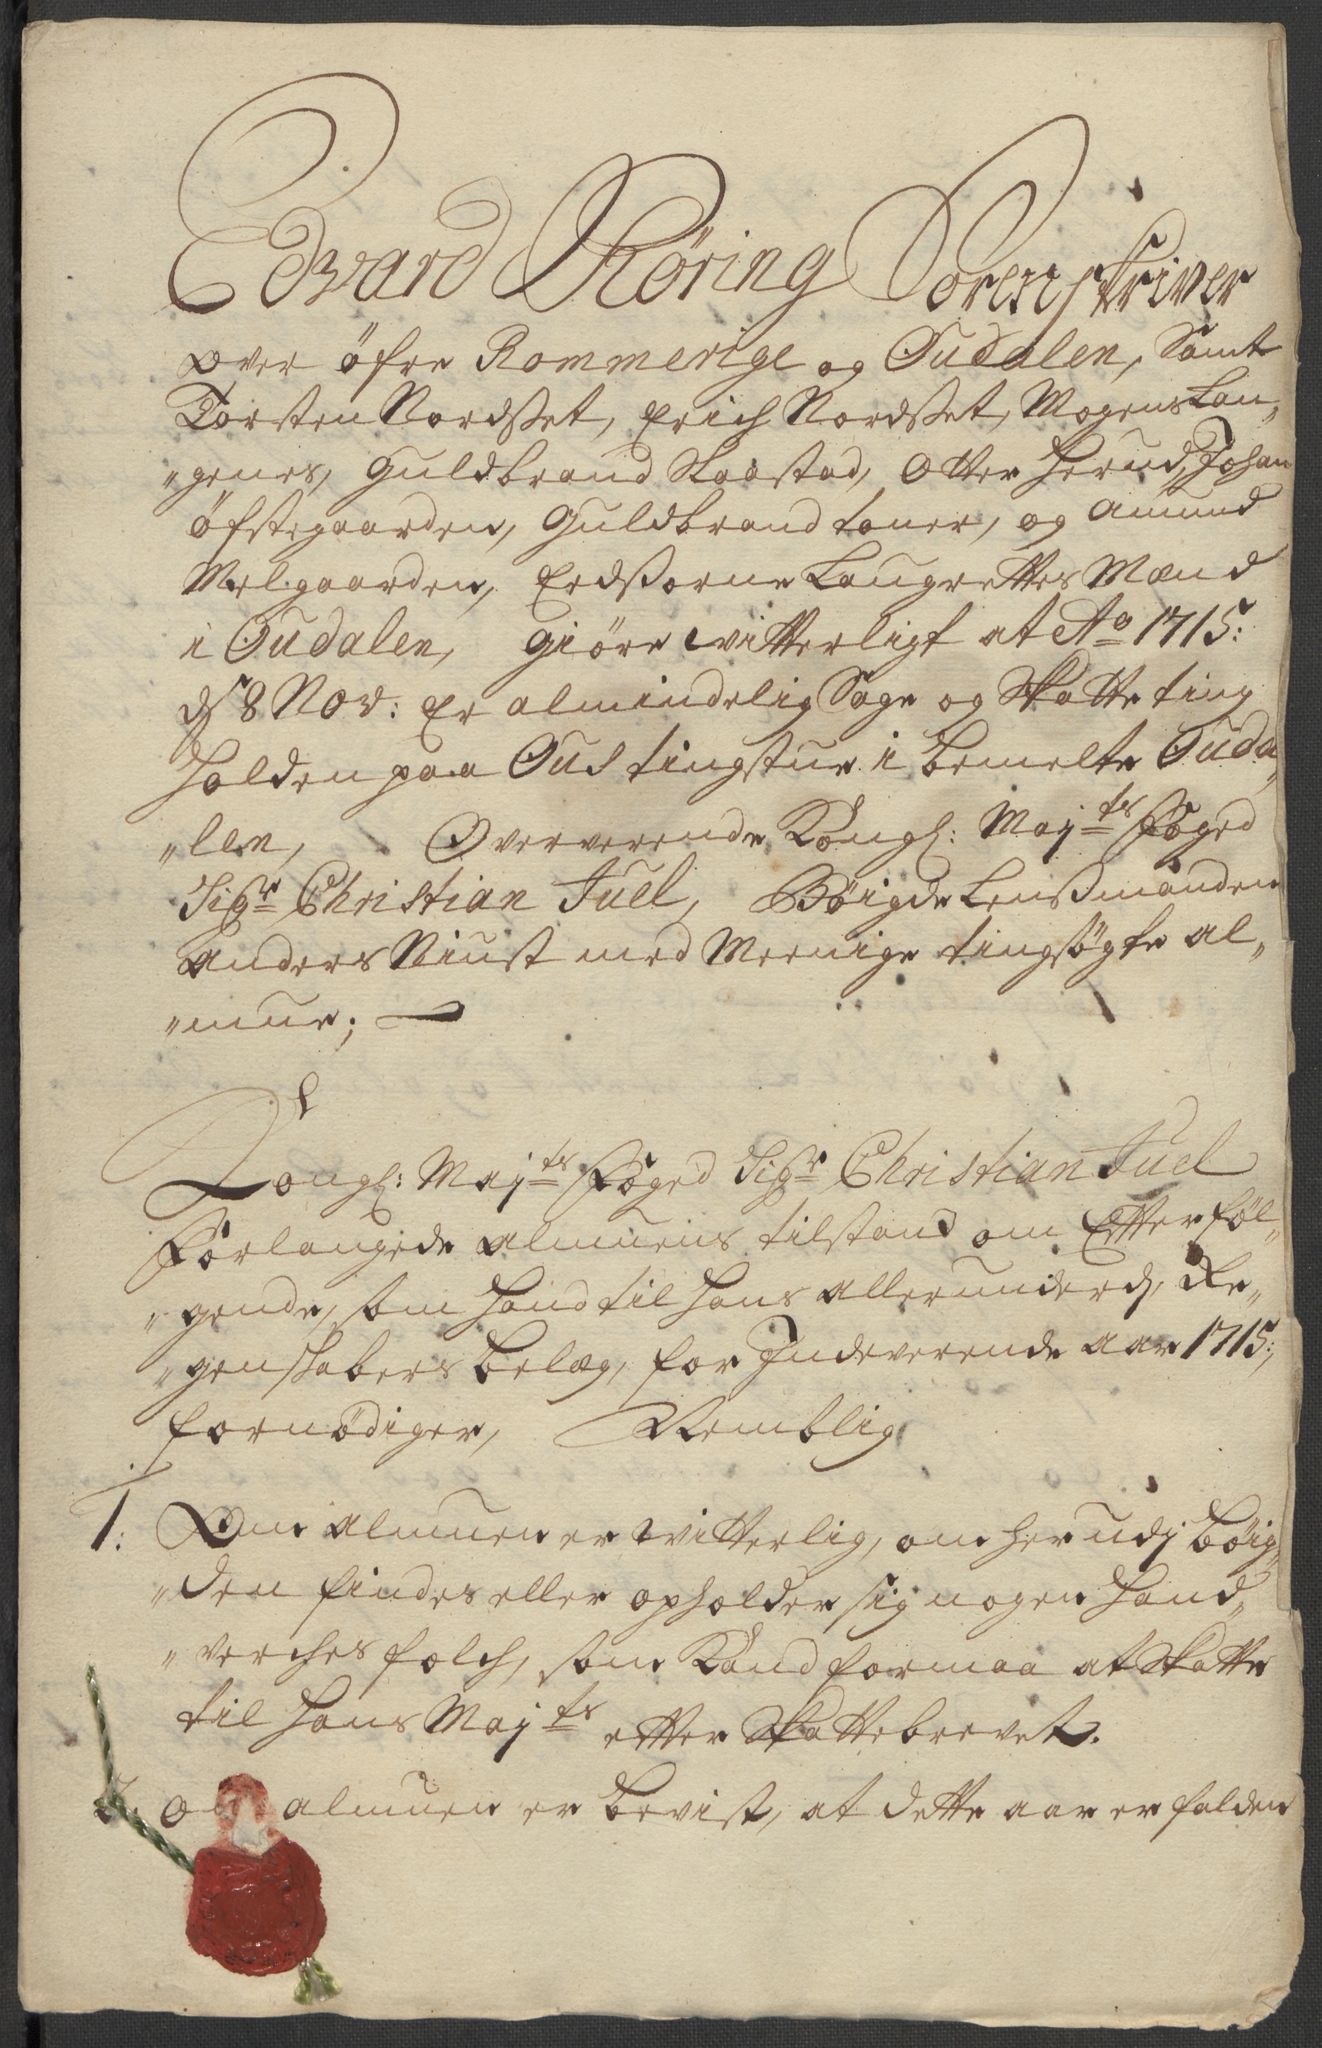 Edvard Röring Sorenskriver
over öfre Rommerige og Oudalen, Samt
Torsten Nordsset, Erich Nordsset, Mogens Lan,,
,,genes, Guldbrand Kaastad, Otter Herud, Johan
öfstegaarden, Guldbrand toner, og Amund
Melgaarden, Edssorne Laugrettes Mænd
i Oudalen, giöre witterligt at Ao 1715:
ds 8 Nov: er almindelig Sage og Skatte ting
holden paa Ous tingstue i bemelte Ouda,,
,,len, Oververende Kongl: Majts Foged
Sigr Christian Juel, Böigde Lenssmanden
Anders Niust med Meenige tingsögte al,,
,,mue;
Kongl: Majts Foged Sigr Christian Juel
Forlangede Almuens tilstand om Etterföl,,
,,gende, som hand til hans allerunderd, Re,,
,,genskabers belæg, for Indeverende aar 1715:,
fornödiger, Nemblig
1: Om almuen er witterlig, om her udj böig,,
,,den findes eller opholder sig nogen hand,,
,,verches folch, som Kand formaa at Skatte
til hans Majts etter Skattebrevet.
2. om almuen er bevist, at dette aar er falden